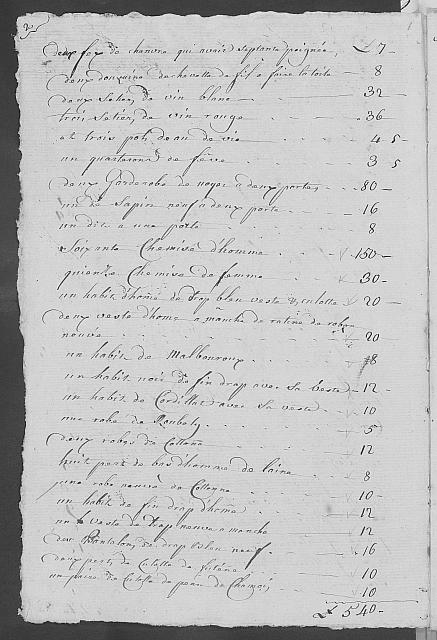 2
deux fex de chanvre qui avait septante poignée, £ 7 -
deux douzaine de chevalle de fil a faire la toile - 8
deux setier de vin blanc - 32
trois setier de vin rouge - 36
et trois pots de eau de vie - 4 5
un quarteron de fève - 3 5
deux Garderobe de noyer a deux portes - 80 -
une de sapin neuf a deux porte - 16
un dit a une porte 8
Soixante Chemise d'homme - 150 -
quienze Chemise de femme 30 -
un habit d'home de drap bleu veste & culotte 20 -
deux veste d'home a manche de ratine de
neuve 20
un habit de Malbouroux 8
un habit noir de fin drap avec sa veste - 12 -
un habit de Cordillat avec sa veste 10
une robe de 5
deux robes de Cottone 12
huit pert de bas d'homme de laine 8
une robe neuve de Cottonne 10 -
un habit de fin drap d'home 12
un veste de drap neuve a manche 12
deux Pantalon de drap bleu neuf - 16
deux pert de Culotte de futène 10
un paire de Culotte de peau de Chamois 10
£ 540 -